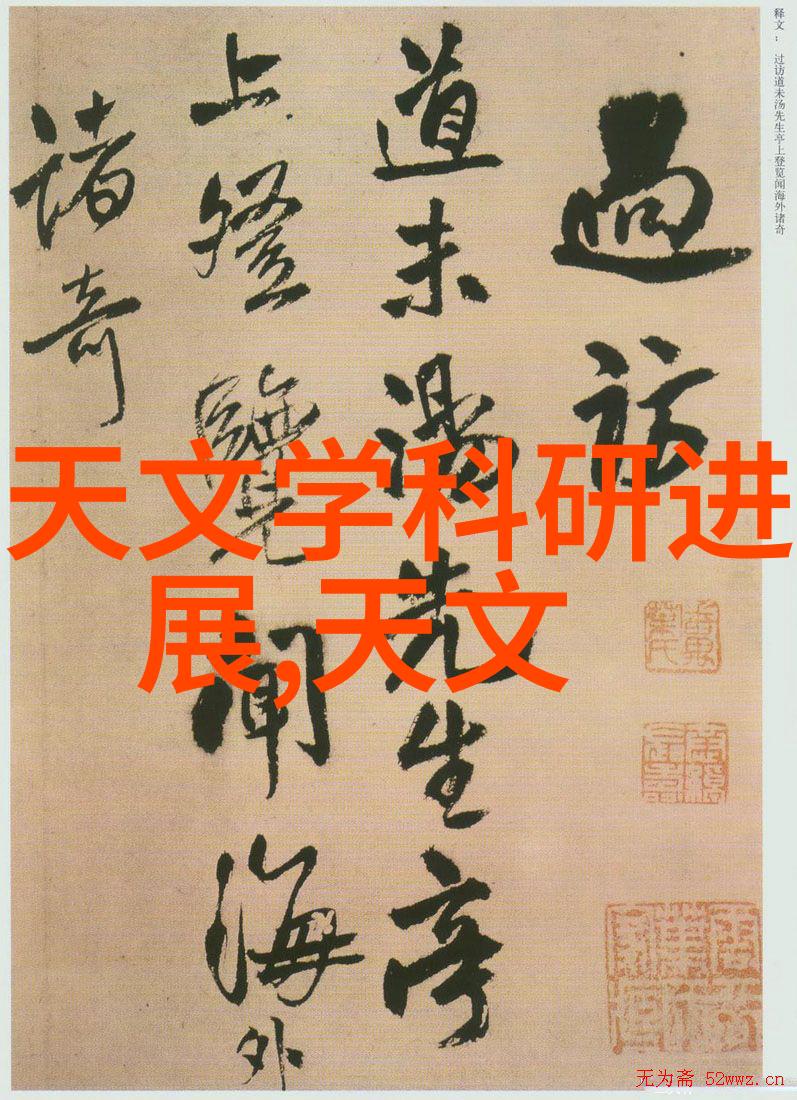 释文： 过访道未汤先生亭上登览闻海外诸奇
過訪
道未湯先生亭
上登覽聞海外
諸奇
天文学科研进
展,天文
无为斋 52wwz.cn